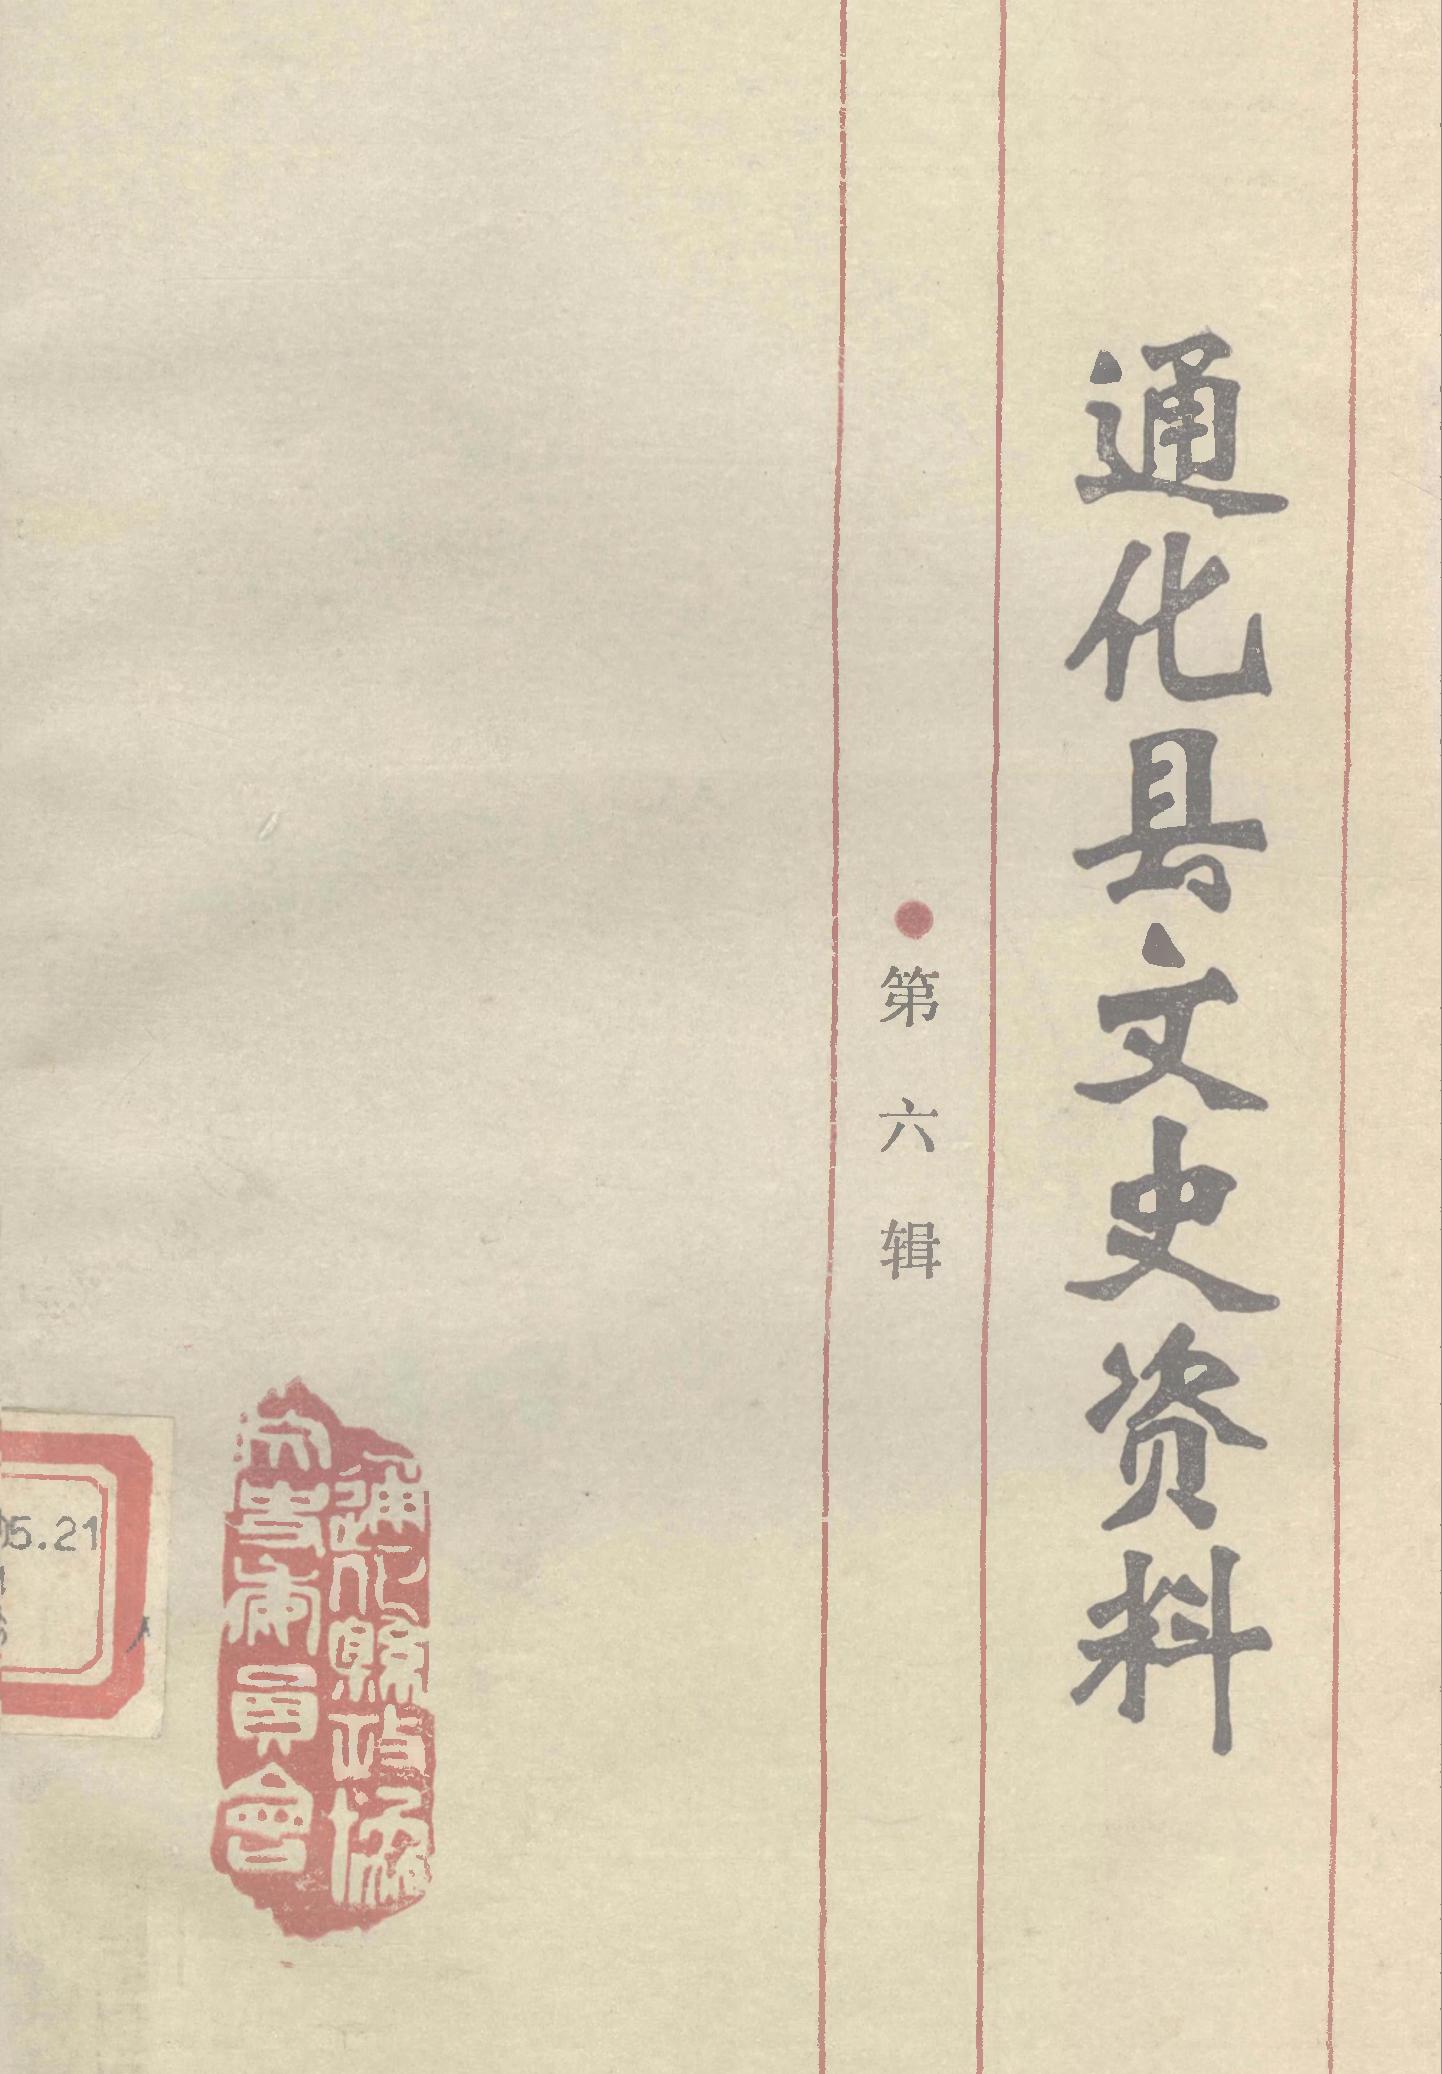 通化县文史资料
●第六辑
通化縣政協
文史委員會
05.21